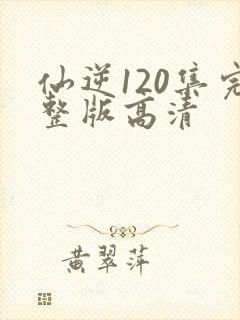 仙逆120集完
整版高清
黄翠萍